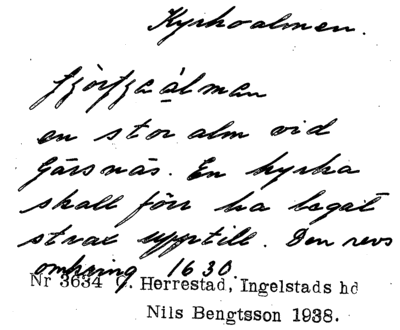 Kyrkoalmen.
en stor alm vid
Gärsnäs. En kyrka
skall förr ha legat
strax upptill. Den revs
omkring 1630.
Nr 3634 Ö. Herrestad, Ingelstads hd
Nils Bengtsson 1938.